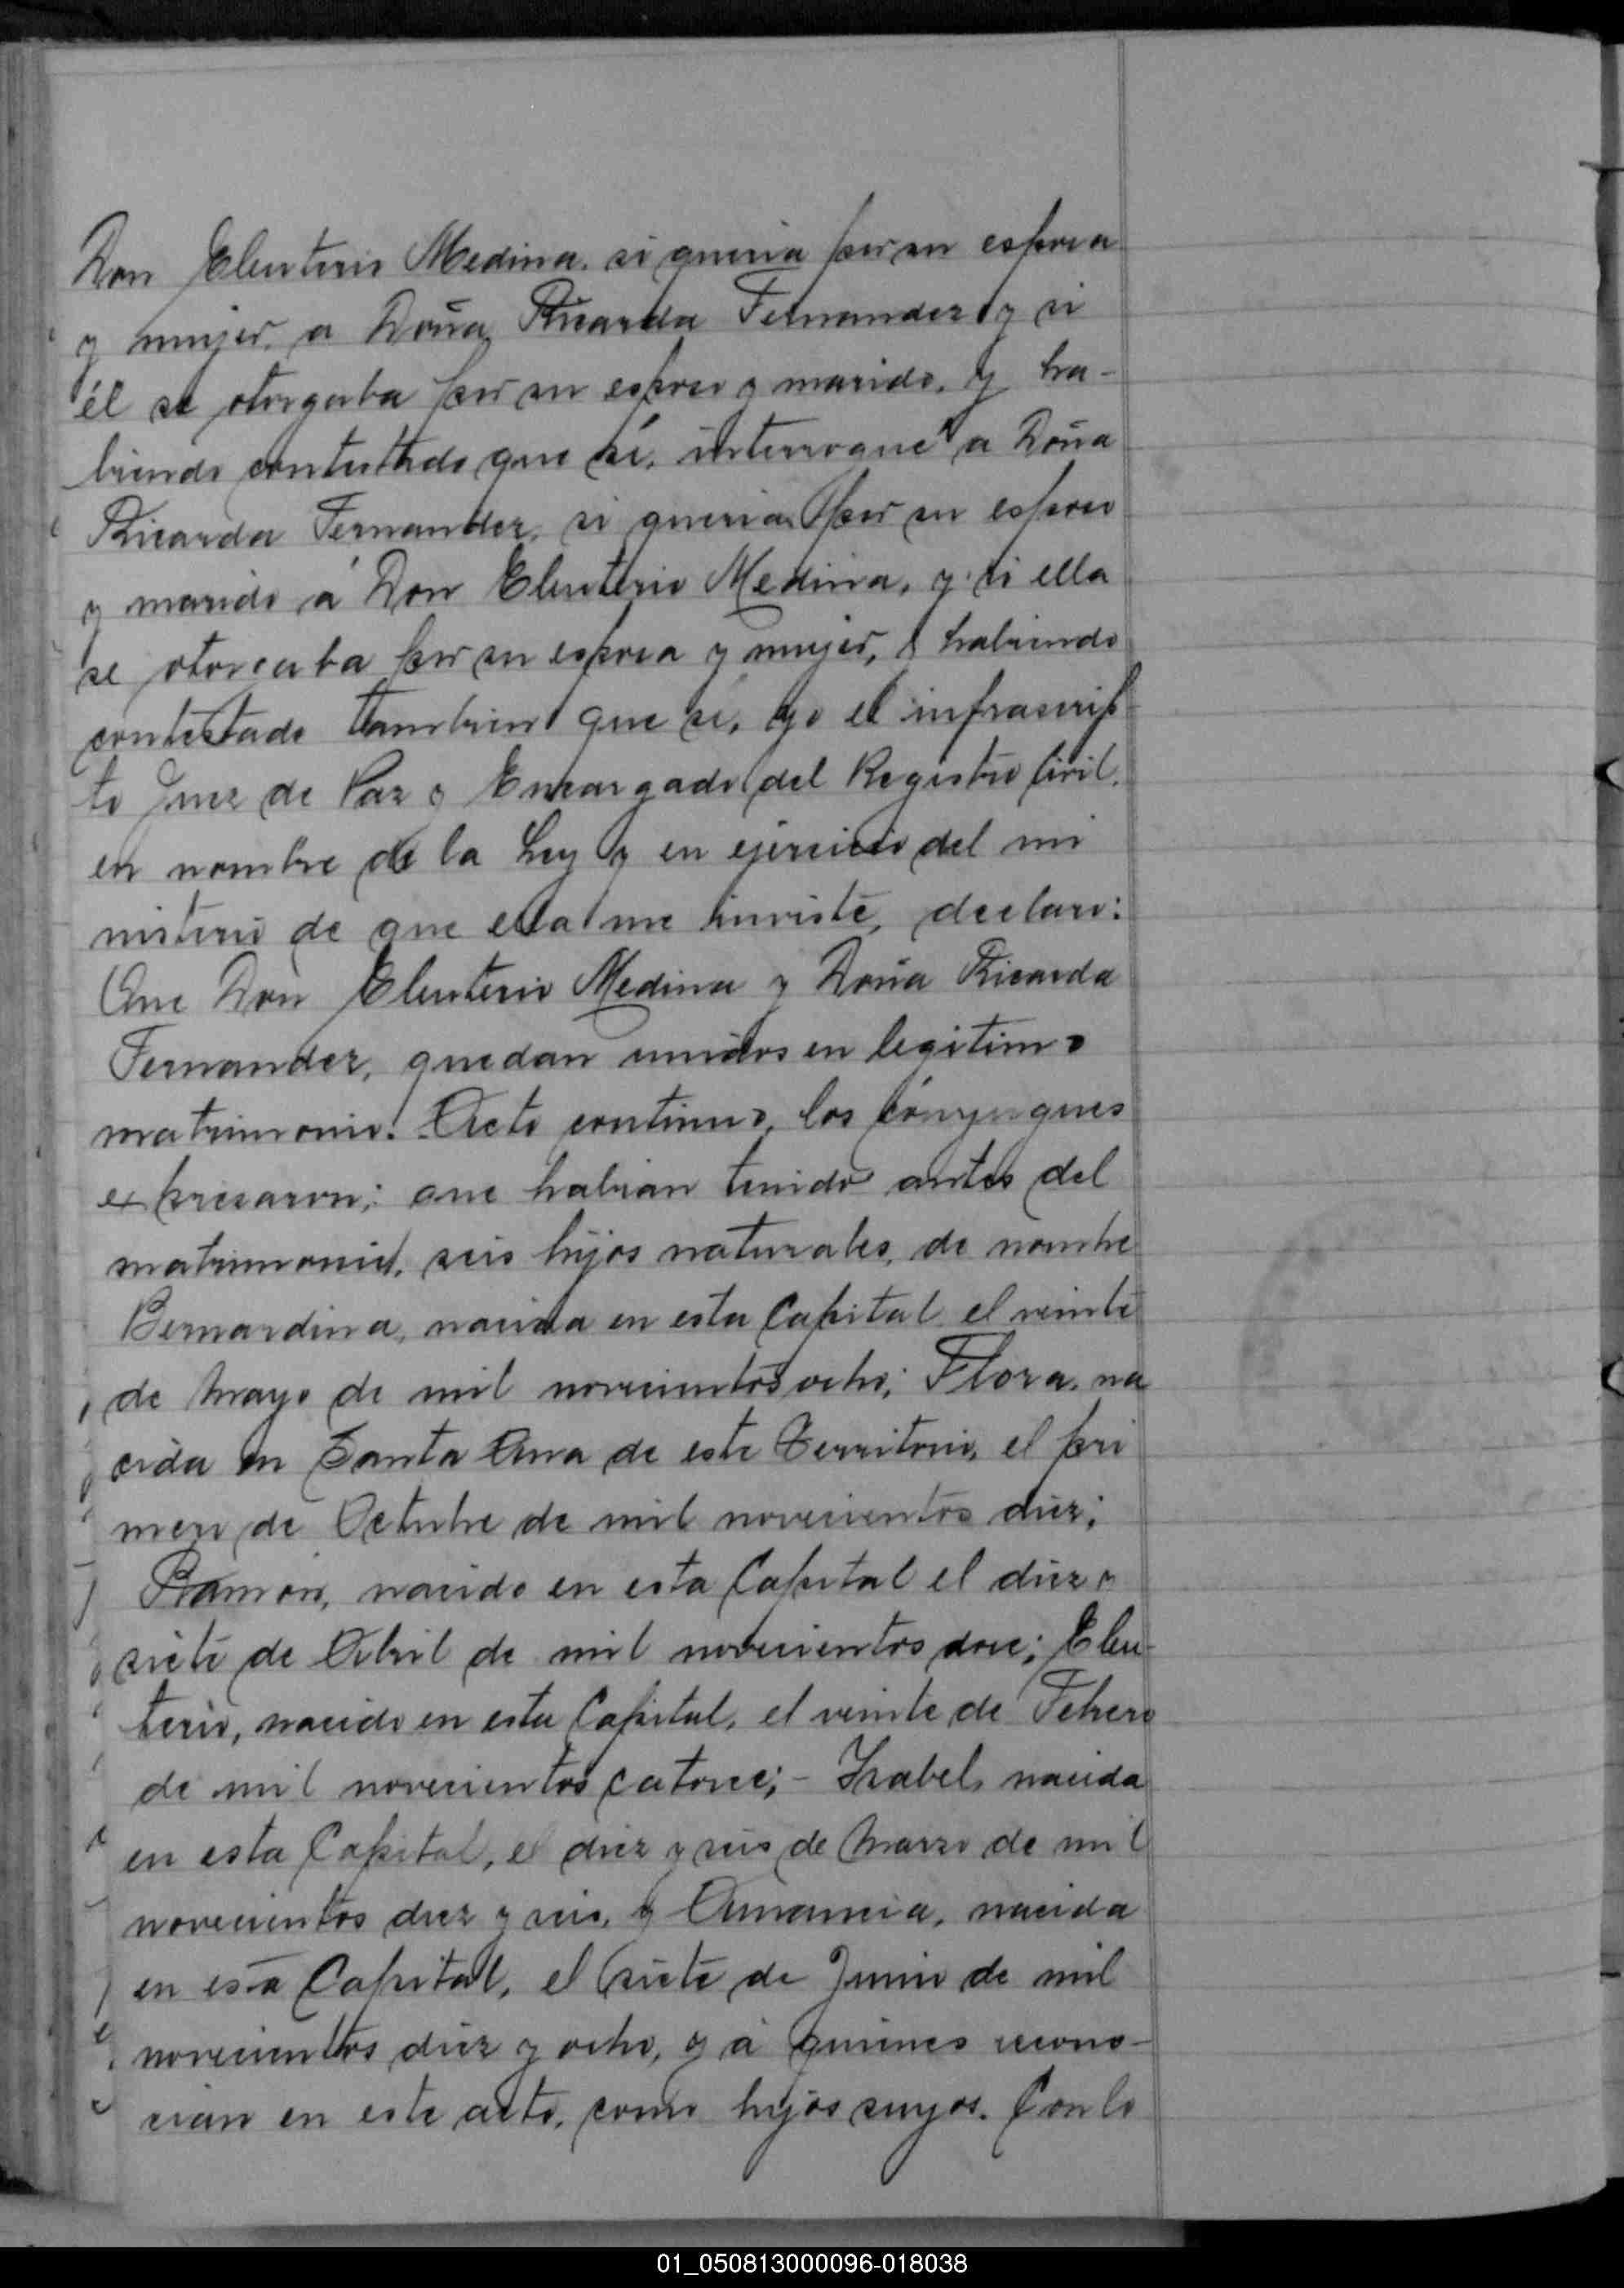 Don Eleuterio Medina. si queria por su esposa
y mujer. a Doña Ricarda Fernandez y si
él se otorgaba por su esposo y marido. y ha-
biendo contestado que sí, interrogué a Doña
Ricarda Fernandez, si queria por su esposo
y marido á Don Eleuterio Medina, y si ella
se otorgaba por su esposa y mujer, y habiendo
contestado tambien que sí, yo el infrascrip
to Juez de Paz y Encargado del Registro Civil.
en nombre de la Ley y en ejercicio del mi
nisterio de que ella me inviste, declaro:
Que Don Eleuterio Medina y Doña Ricarda
Fernandez, quedan unidos en legitimo
matrimonio. Acto continuo, los cónyugues
expresaron: que habian tenido antes del
matrimonio, seis hijos naturales, de nombre
Bernardina, nacida en esta Capital el veinte
de Mayo de mil novecientos ocho; Flora, na
cida en Santa Ana de este Territorio, el pri
mero de Octubre de mil novecientos diez;
Ramón, nacido en esta Capital el diez y
siete de Abril de mil novecientos doce; Eleu-
terio, nacido en esta Capital, el veinte de Febrero
de mil novecientos catorce;- Isabel, nacida
en esta Capital, el diez y seis de Marzo de mil
novecientos diez y seis, y Amancia, nacida
en esta Capital, el siete de Junio de mil
novecientos diez y ocho, y á quienes recono-
cian en este acto, como hijos suyos. Con lo
01_050813000096-018038